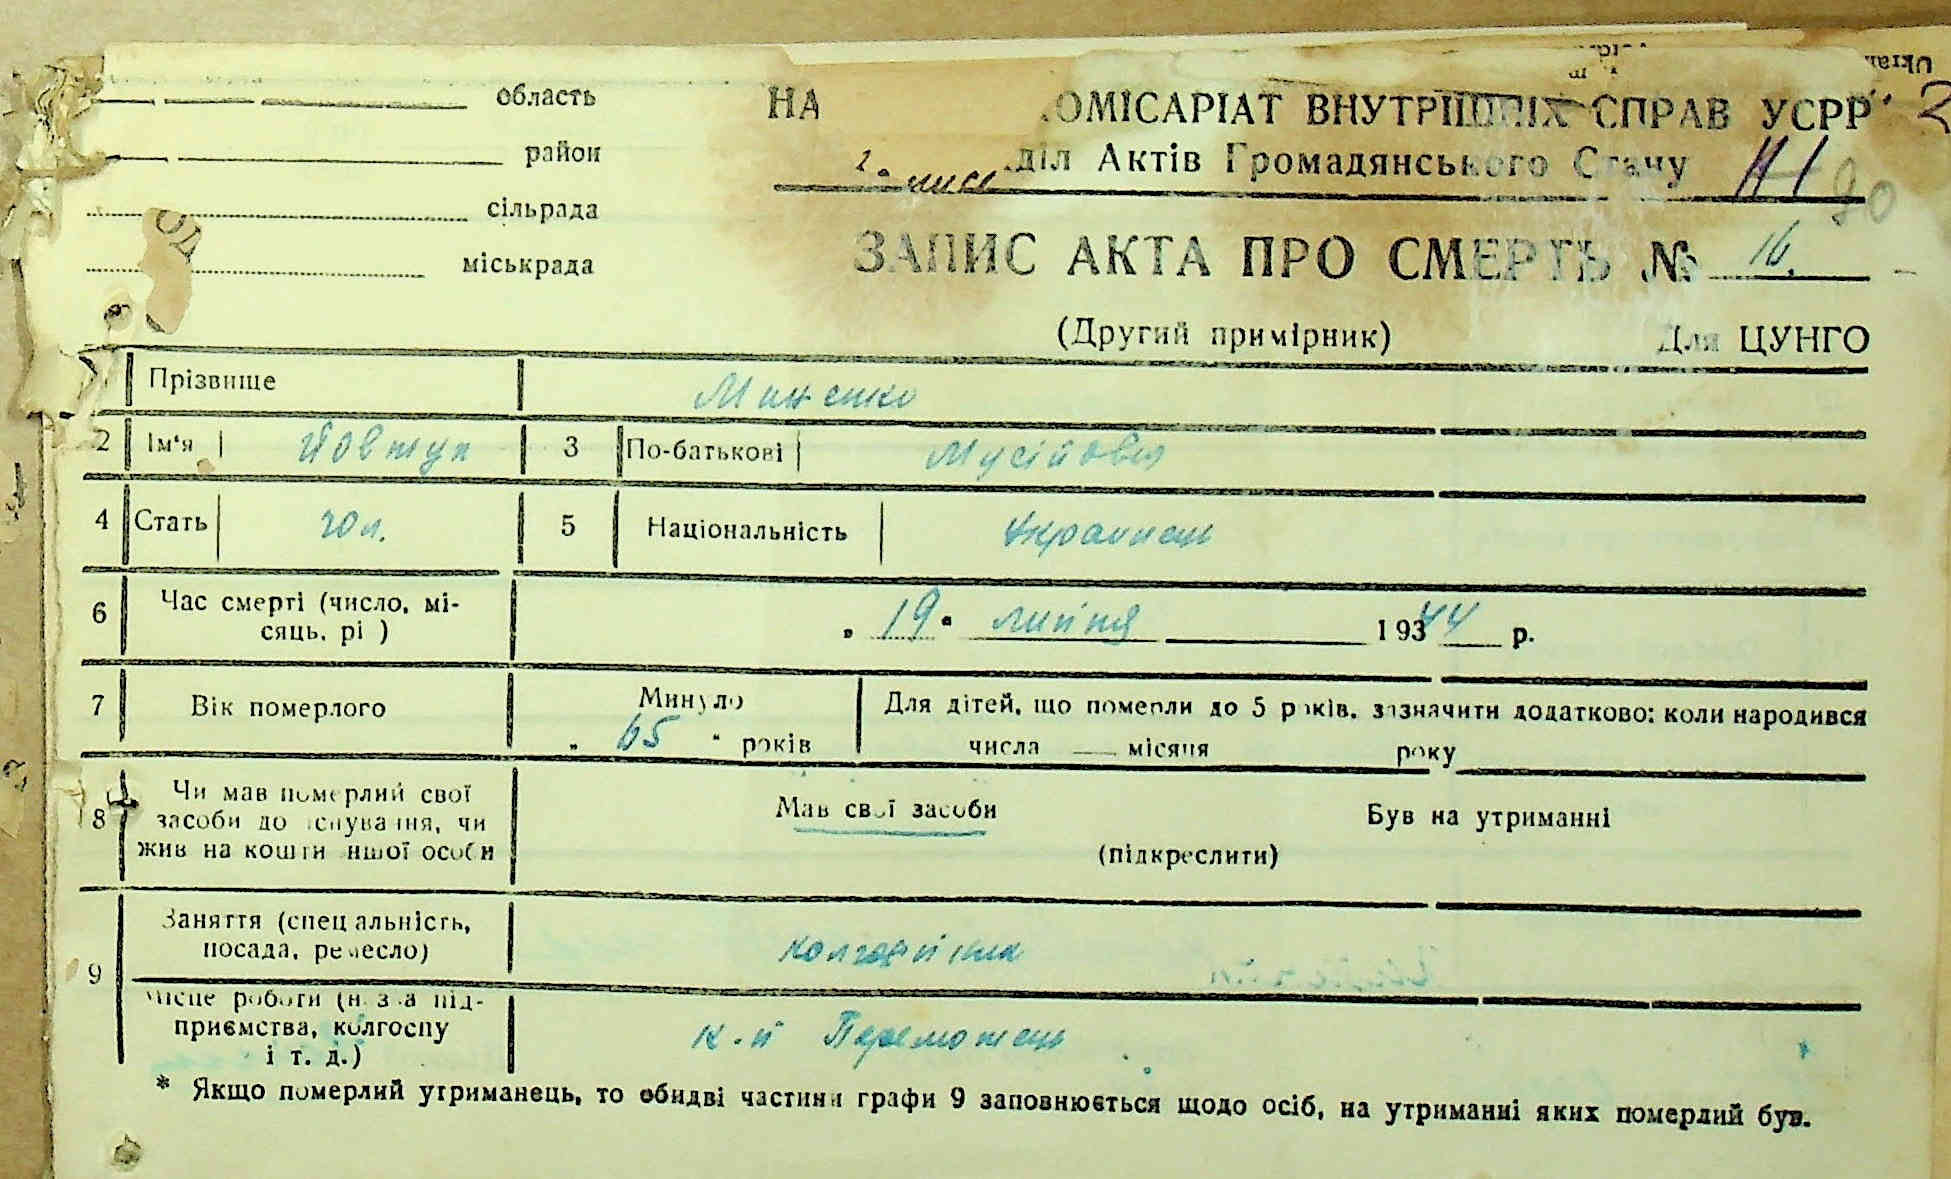 область
район
сільрада
міськрада
НА ОМІСАРІАТ ВНУТРІШНІХ СПРАВ УСРР
діл Актів Громадянського Стану
ЗАПИС АКТА ПРО СМЕРТЬ № 16.
(Другий примірник) Для ЦУНГО
Прізвище Миненко
2 Ім'я Йовтуп 3 По-батькові Мусійович
4 Стать чол. 5 Національність Українець
6 Час смерті (число, мі-
сяць, рі ) „ 19 " липня 193 44 р.
7 Вік померлого Минуло „ 65 " років Для дітей, що померли до 5 років, зазначити додатково: коли народився
числа — місяця року
8 Чи мав померлий свої
засоби до існування, чи
жив на кошти іншої особи
Мав свої засоби Був на утриманні
(підкреслити)
9 Заняття (спеціальність,
посада, ремесло) колгоспник
Місце роботи (назва під-
приємства, колгоспу
і т. д.) к.п Переможець
* Якщо померлий утриманець, то обидві частини графи 9 заповнюється щодо осіб, на утриманні яких померлий був.